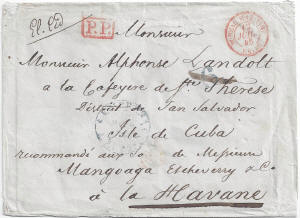 P.P.
Monsieur
Monsieur Alphonse Landolt
à la Cafeyere de Ste Thérèse
District de San Salvador
Isle de Cuba
recommandé aux de Messieurs
Mangoaga Etscheverry & Co.
à la Havane